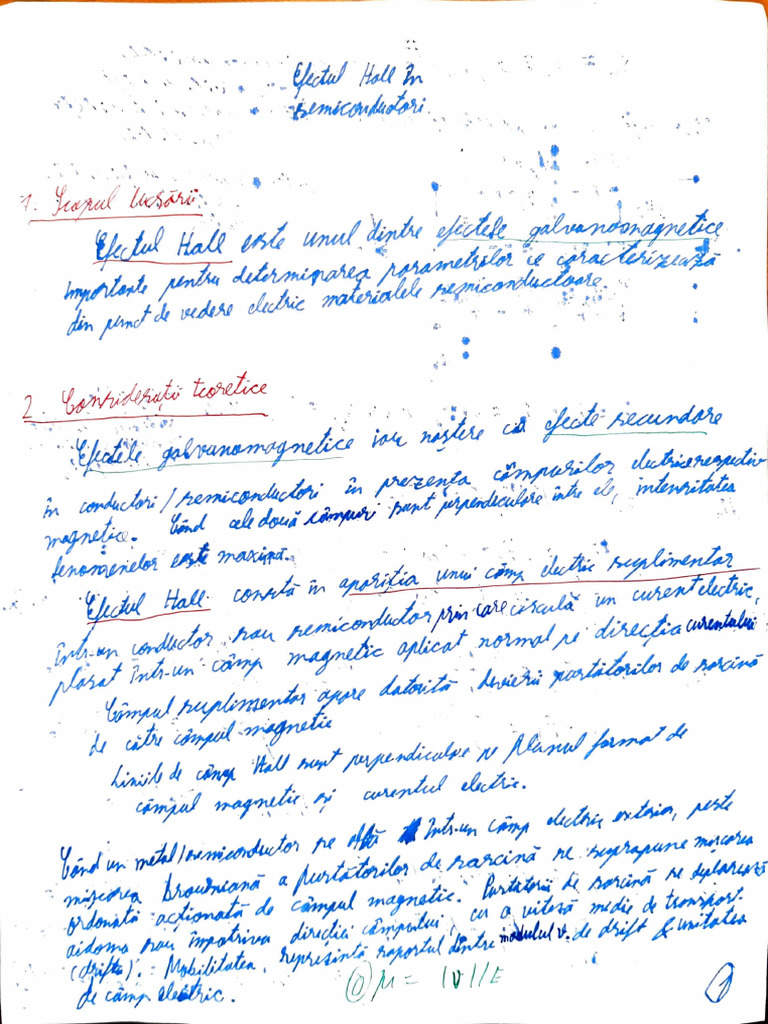 Efectul Hall în
semiconductori.
1. Scopul lucrării:
Efectul Hall este unul dintre efectele galvanomagnetice
importante pentru determinarea parametrilor ce caracterizează
din punct de vedere electric materialele semiconductoare.
2. Considerații teoretice
Efectele galvanomagnetice iau naștere ca efecte secundare
în conductori/semiconductori în prezența câmpurilor electrice respectiv
magnetice. Când cele două câmpuri sunt perpendiculare între ele, intensitatea
fenomenelor este maximă.
Efectul Hall constă în apariția unui câmp electric suplimentar
într-un conductor sau semiconductor prin care circulă un curent electric,
plasat într-un câmp magnetic aplicat normal pe direcția curentului
Câmpul suplimentar apare datorită devierii purtătorilor de sarcină
de către câmpul magnetic
Liniile de câmp Hall sunt perpendiculare pe planul format de
câmpul magnetic și curentul electric.
Când un metal/semiconductor se află într-un câmp electric exterior, peste
mișcarea browneană a purtătorilor de sarcină se suprapune mișcarea
ordonată acționată de câmpul magnetic. Purtătorii de sarcină se deplasează
aidoma sau împotriva direcției câmpului, cu o viteză medie de transport
(drift). Mobilitatea reprezintă raportul dintre modulul v. de drift & unitatea
de câmp electric.
① μ = |v|/E
1